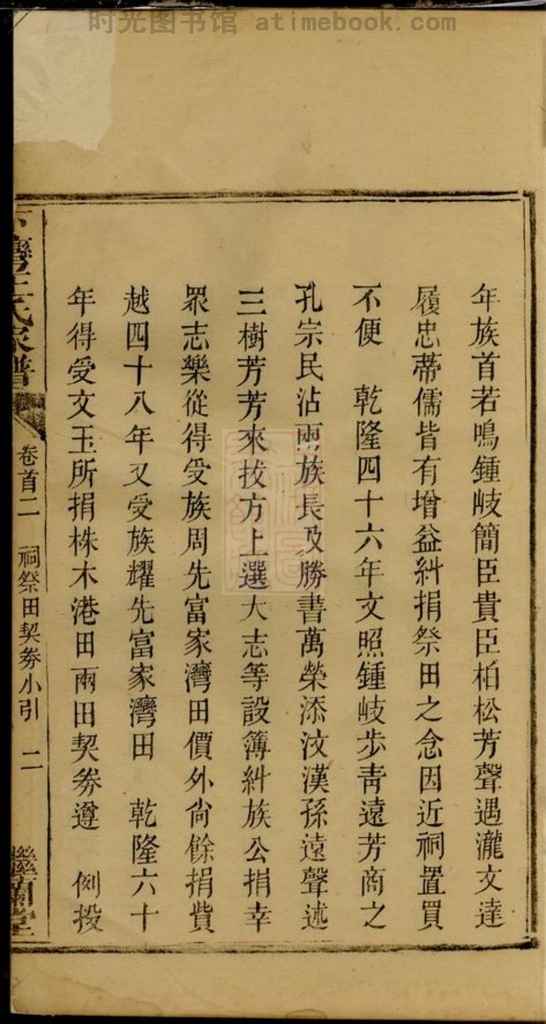 时光图书馆 atimebook.com
年族首若鳴鍾岐簡臣貴臣柏松芳聲遇瀧文達
履忠蒂儒皆有增益糾捐祭田之念因近祠置買
不便 乾隆四十六年文照鍾岐步青遠芳商之
孔宗民沾兩族長及勝書萬榮添汶漢孫遠聲述
三樹芳芳來拔方上選大志等設簿糾族公捐幸
眾志樂從得受族周先富家灣田價外尙餘捐貲
越四十八年又受族耀先富家灣田 乾隆六十
年得受文玉所捐株木港田兩田契券遵 例投
灣王氏家譜 卷首二 祠祭田契券小引 二 繼蘭堂